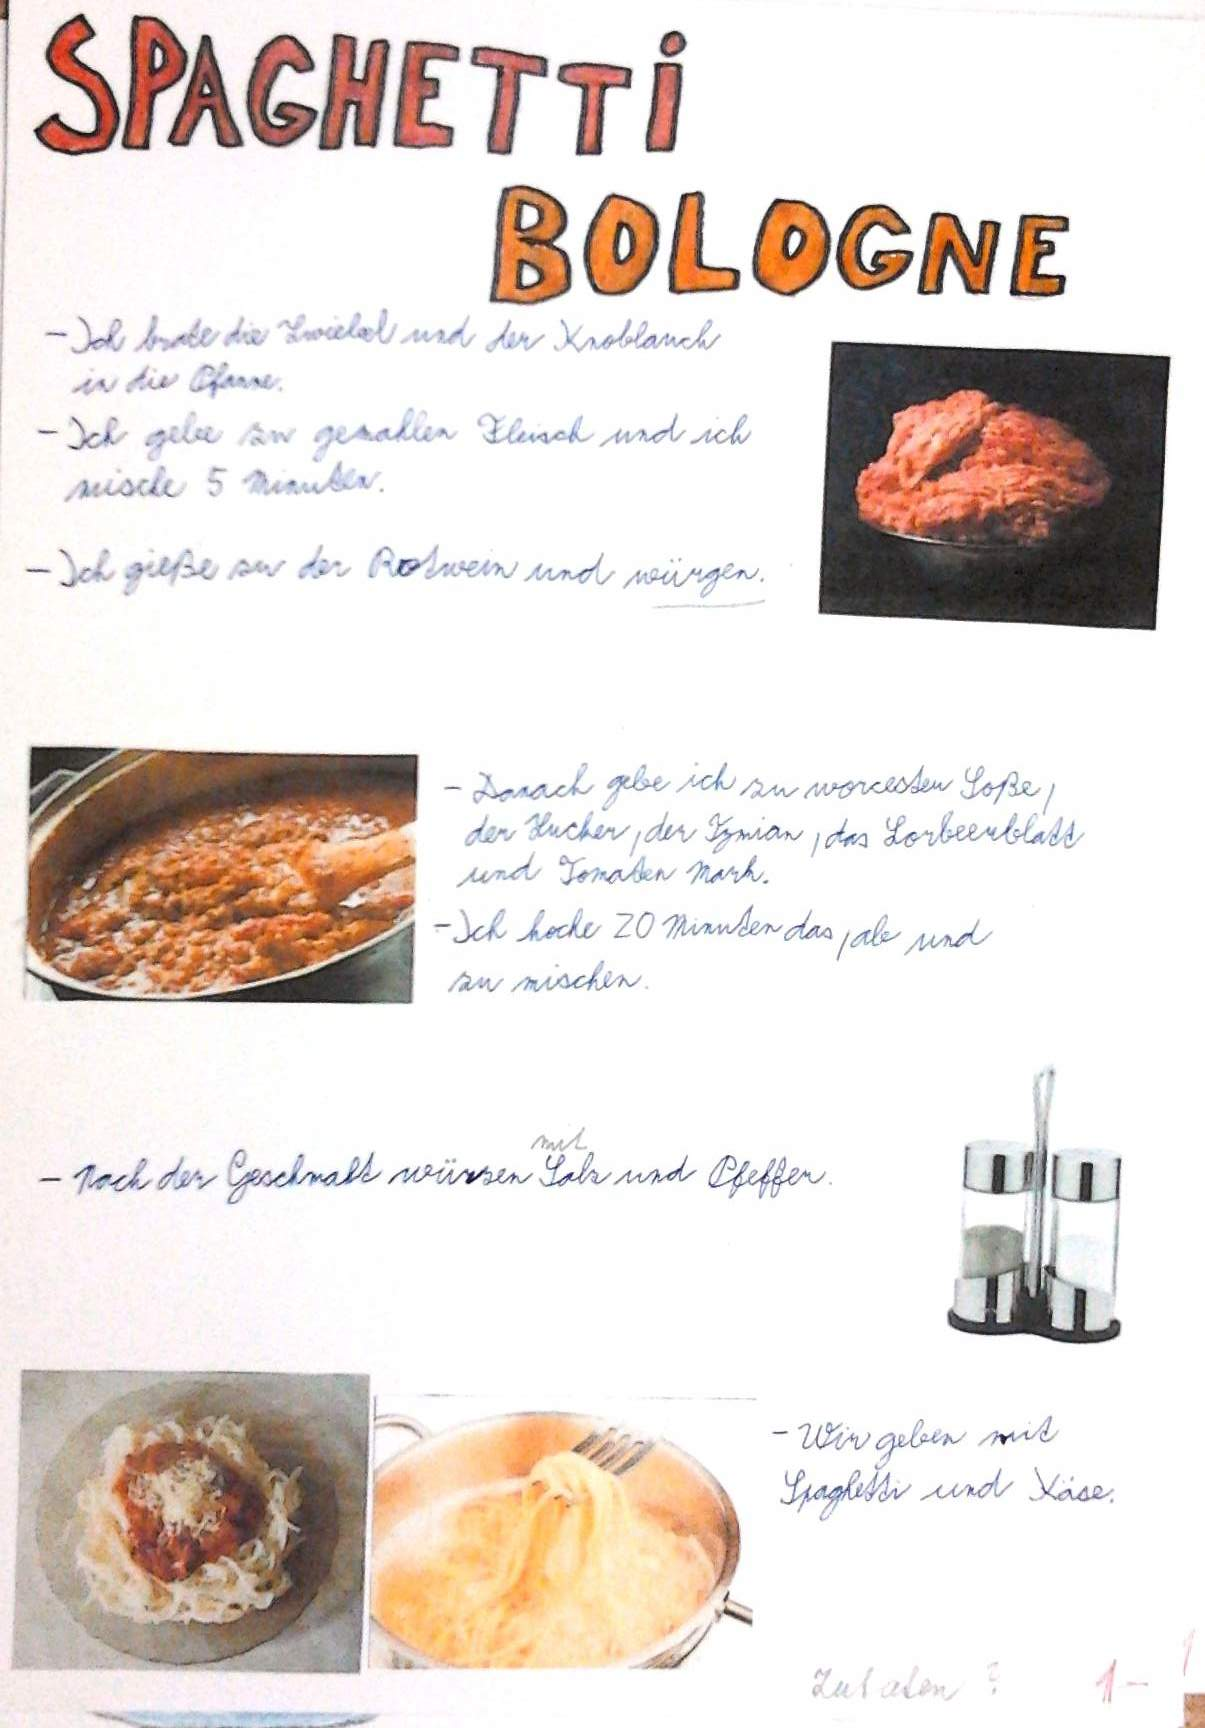 SPAGHETTi
BOLOGNE
- Ich brate die Zwiebel und der Knoblauch
in die Pfanne.
- Ich gebe zu gemahlen Fleisch und ich
mische 5 Minuten.
- Ich gieße zu der Rotwein und würgen.
- Danach gebe ich zu worcesten Soße,
der Zucker, der Tymian, das Lorbeerblatt
und Tomaten Mark.
- Ich koche 20 Minuten das, ab und
zu mischen.
mit
- Nach der Geschmakt würzen Salz und Pfeffer.
- Wir geben mit
Spaghetti und Käse.
Zutaten ? 1-